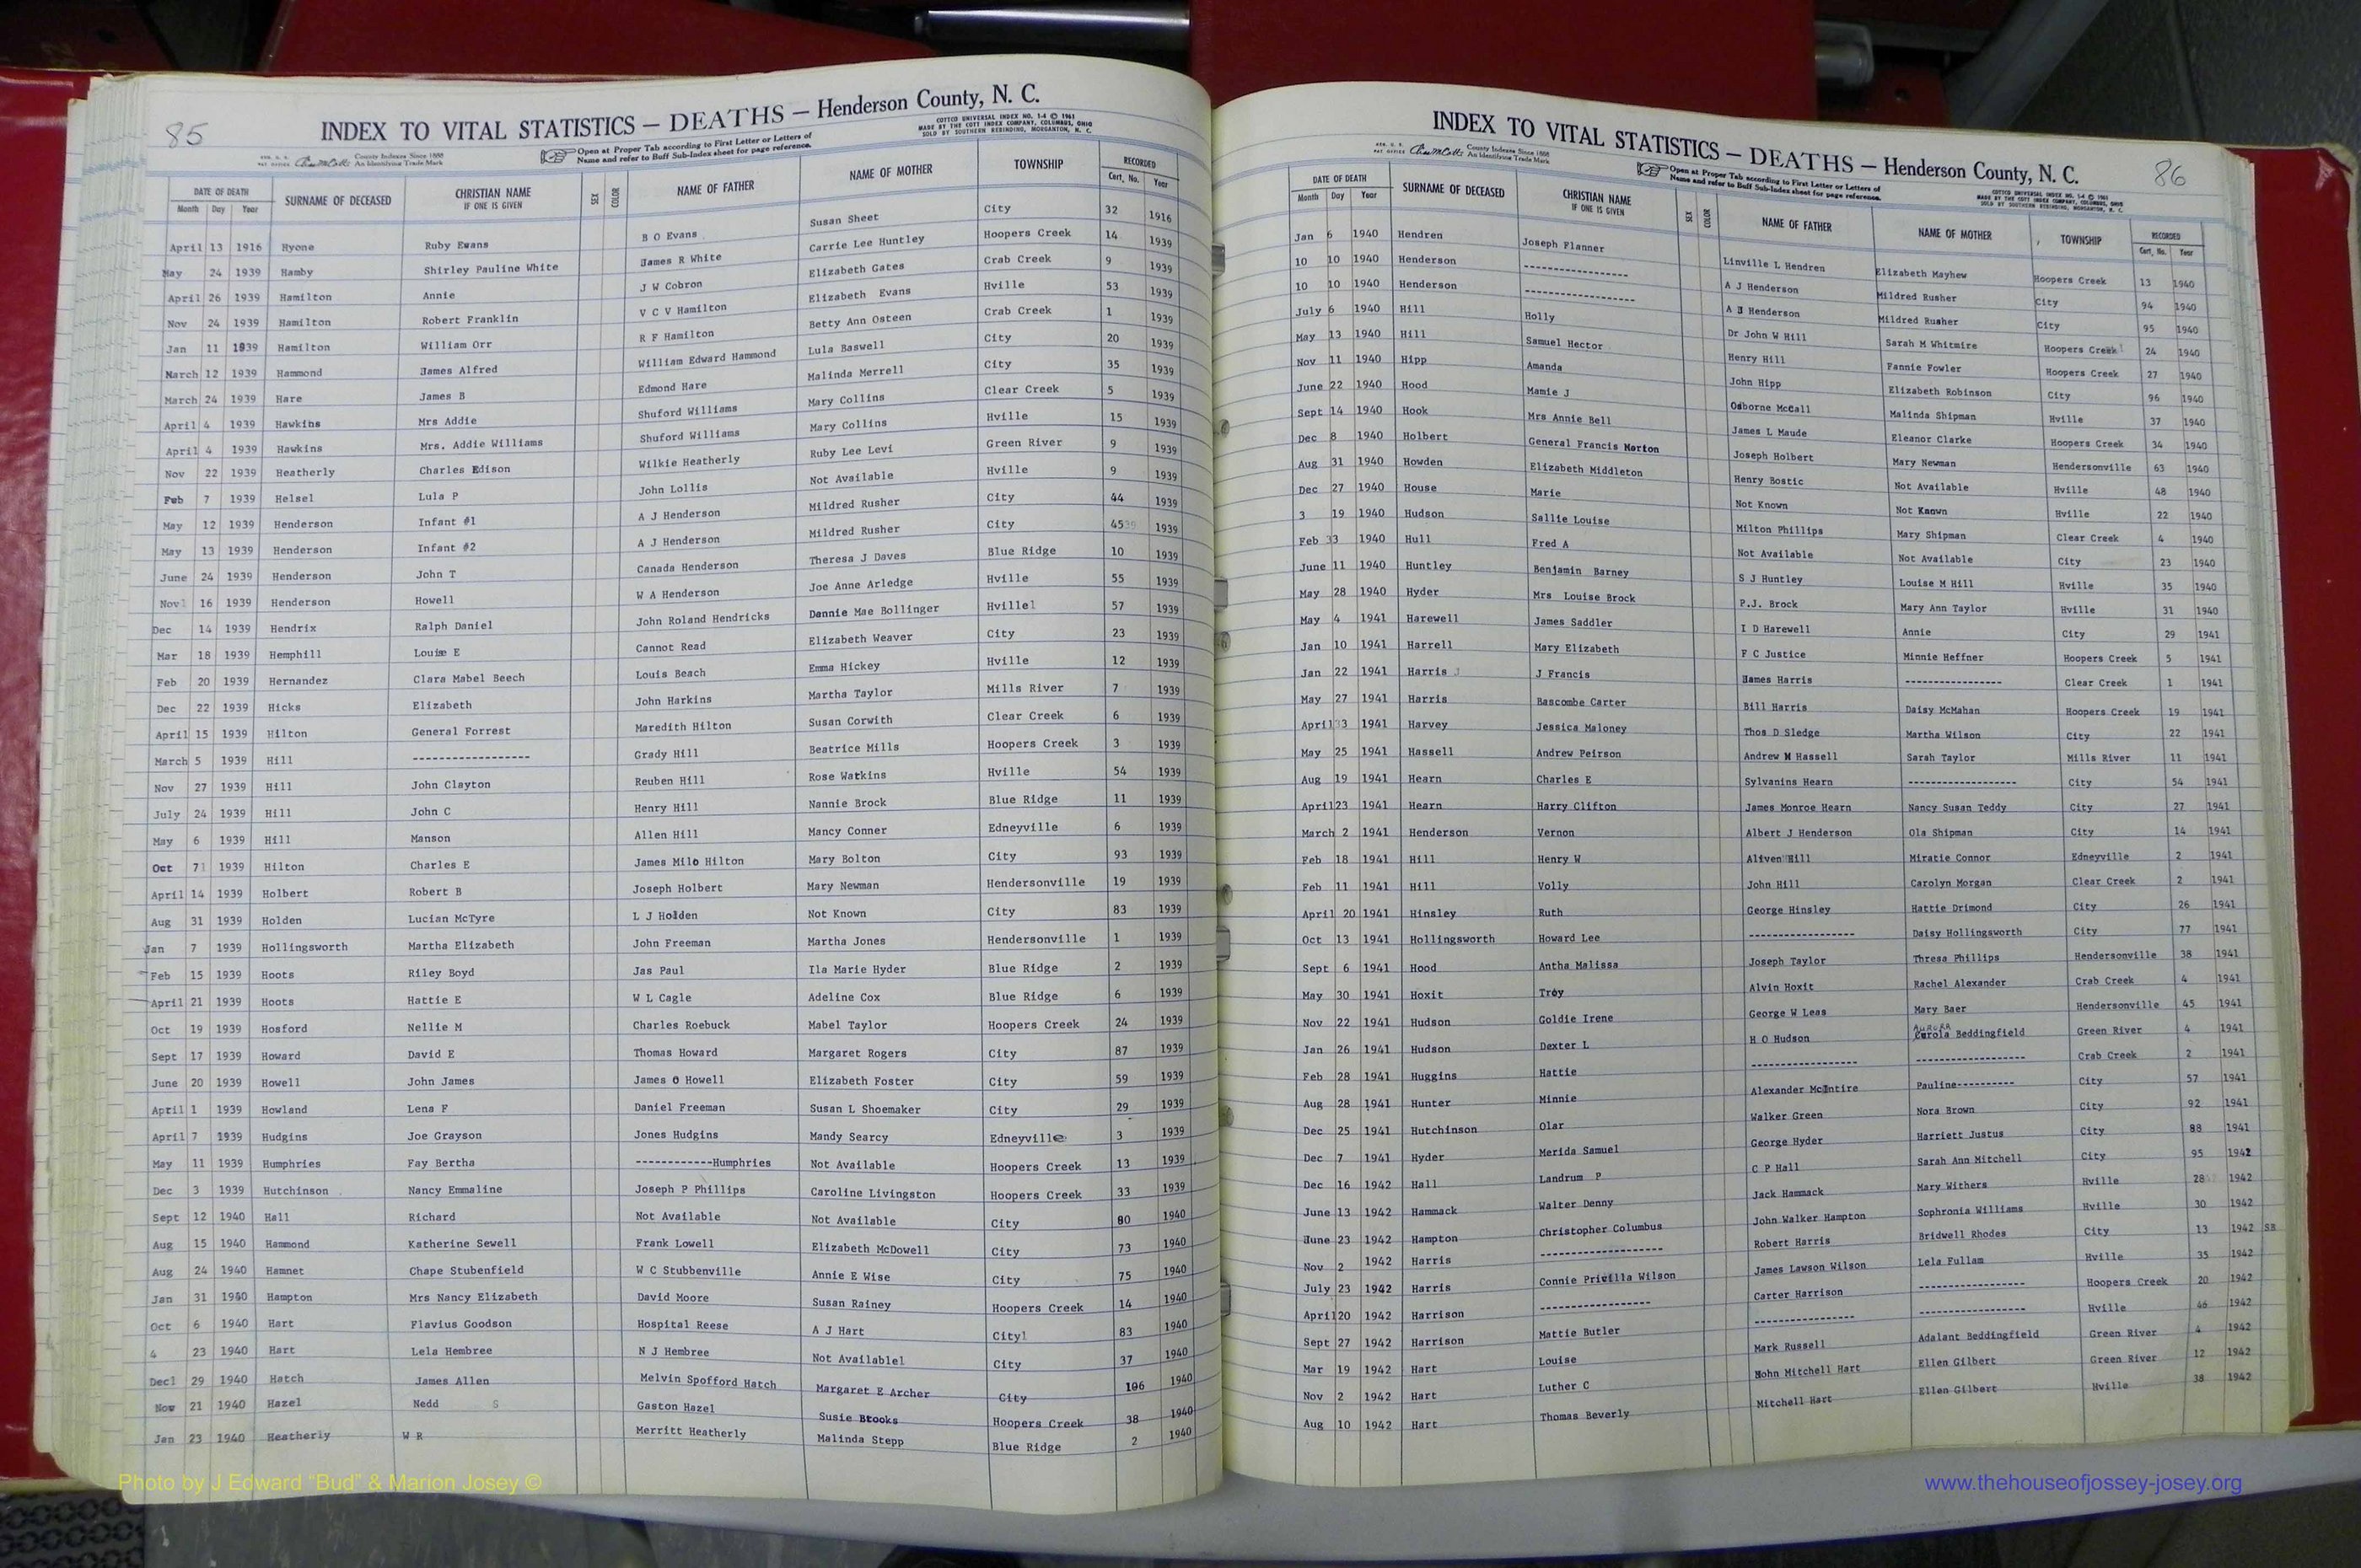 85
INDEX TO VITAL STATISTICS — DEATHS — Henderson County, N. C.
COTTCO UNIVERSAL INDEX NO. 1-4 © 1961
MADE BY THE COTT INDEX COMPANY, COLUMBUS, OHIO
SOLD BY SOUTHERN REBINDING, MORGANTON, N. C.
County Indexes Since 1888
An Identifying Trade Mark
Open at Proper Tab according to First Letter or Letters of
Name and refer to Buff Sub-Index sheet for page reference.
DATE OF DEATH SURNAME OF DECEASED CHRISTIAN NAME IF ONE IS GIVEN SEX COLOR NAME OF FATHER NAME OF MOTHER TOWNSHIP RECORDED
Month Day Year Cert. No. Year
April 13 1916 Hyone Ruby Ewans B O Evans Susan Sheet City 32 1916
May 24 1939 Hamby Shirley Pauline White James R White Carrie Lee Huntley Hoopers Creek 14 1939
April 26 1939 Hamilton Annie J W Cobron Elizabeth Gates Crab Creek 9 1939
Nov 24 1939 Hamilton Robert Franklin V C V Hamilton Elizabeth Evans Hville 53 1939
Jan 11 1939 Hamilton William Orr R F Hamilton Betty Ann Osteen Crab Creek 1 1939
March 12 1939 Hammond James Alfred William Edward Hammond Lula Baswell City 20 1939
March 24 1939 Hare James B Edmond Hare Malinda Merrell City 35 1939
April 4 1939 Hawkins Mrs Addie Shuford Williams Mary Collins Clear Creek 5 1939
April 4 1939 Hawkins Mrs. Addie Williams Shuford Williams Mary Collins Hville 15 1939
Nov 22 1939 Heatherly Charles Edison Wilkie Heatherly Ruby Lee Levi Green River 9 1939
Feb 7 1939 Helsel Lula P John Lollis Not Available Hville 9 1939
May 12 1939 Henderson Infant #1 A J Henderson Mildred Rusher City 44 1939
May 13 1939 Henderson Infant #2 A J Henderson Mildred Rusher City 45 1939
June 24 1939 Henderson John T Canada Henderson Theresa J Daves Blue Ridge 10 1939
Nov 16 1939 Henderson Howell W A Henderson Joe Anne Arledge Hville 55 1939
Dec 14 1939 Hendrix Ralph Daniel John Roland Hendricks Dennie Mae Bollinger Hville1 57 1939
Mar 18 1939 Hemphill Louise E Cannot Read Elizabeth Weaver City 23 1939
Feb 20 1939 Hernandez Clara Mabel Beech Louis Beach Emma Hickey Hville 12 1939
Dec 22 1939 Hicks Elizabeth John Harkins Martha Taylor Mills River 7 1939
April 15 1939 Hilton General Forrest Meredith Hilton Susan Corwith Clear Creek 6 1939
March 5 1939 Hill ----------------- Grady Hill Beatrice Mills Hoopers Creek 3 1939
Nov 27 1939 Hill John Clayton Reuben Hill Rose Watkins Hville 54 1939
July 24 1939 Hill John C Henry Hill Nannie Brock Blue Ridge 11 1939
May 6 1939 Hill Manson Allen Hill Mancy Conner Edneyville 6 1939
Oct 7 1939 Hilton Charles E James Milo Hilton Mary Bolton City 93 1939
April 14 1939 Holbert Robert B Joseph Holbert Mary Newman Hendersonville 19 1939
Aug 31 1939 Holden Lucian McTyre L J Holden Not Known City 83 1939
Jan 7 1939 Hollingsworth Martha Elizabeth John Freeman Martha Jones Hendersonville 1 1939
Feb 15 1939 Hoots Riley Boyd Jas Paul Ila Marie Hyder Blue Ridge 2 1939
April 21 1939 Hoots Hattie E W L Cagle Adeline Cox Blue Ridge 6 1939
Oct 19 1939 Hosford Nellie M Charles Roebuck Mabel Taylor Hoopers Creek 24 1939
Sept 17 1939 Howard David E Thomas Howard Margaret Rogers City 87 1939
June 20 1939 Howell John James James O Howell Elizabeth Foster City 59 1939
April 1 1939 Howland Lena F Daniel Freeman Susan L Shoemaker City 29 1939
April 7 1939 Hudgins Joe Grayson Jones Hudgins Mandy Searcy Edneyville 3 1939
May 11 1939 Humphries Fay Bertha -----------Humphries Not Available Hoopers Creek 13 1939
Dec 3 1939 Hutchinson Nancy Emmaline Joseph P Phillips Caroline Livingston Hoopers Creek 33 1939
Sept 12 1940 Hall Richard Not Available Not Available City 80 1940
Aug 15 1940 Hammond Katherine Sewell Frank Lowell Elizabeth McDowell City 73 1940
Aug 24 1940 Hamnet Chape Stubenfield W C Stubbenville Annie E Wise City 75 1940
Jan 31 1940 Hampton Mrs Nancy Elizabeth David Moore Susan Rainey Hoopers Creek 14 1940
Oct 6 1940 Hart Flavius Goodson Hospital Reese A J Hart City1 83 1940
4 23 1940 Hart Lela Hembree N J Hembree Not Available1 City 37 1940
Dec1 29 1940 Hatch James Allen Melvin Spofford Hatch Margaret E Archer City 106 1940
Nov 21 1940 Hazel Nedd S Gaston Hazel Susie Brooks Hoopers Creek 38 1940
Jan 23 1940 Heatherly W R Merritt Heatherly Malinda Stepp Blue Ridge 2 1940
Photo by J Edward “Bud” & Marion Josey ©
INDEX TO VITAL STATISTICS — DEATHS — Henderson County, N. C.
86
County Indexes Since 1888
An Identifying Trade Mark
Open at Proper Tab according to First Letter or Letters of
Name and refer to Buff Sub-Index sheet for page reference.
COTTCO UNIVERSAL INDEX NO. 1-4 © 1961
MADE BY THE COTT INDEX COMPANY, COLUMBUS, OHIO
SOLD BY SOUTHERN REBINDING, MORGANTON, N. C.
DATE OF DEATH SURNAME OF DECEASED CHRISTIAN NAME IF ONE IS GIVEN SEX COLOR NAME OF FATHER NAME OF MOTHER TOWNSHIP RECORDED
Month Day Year Cert. No. Year
Jan 6 1940 Hendren Joseph Flanner Linville L Hendren Elizabeth Mayhew Hoopers Creek 13 1940
10 10 1940 Henderson --------------- A J Henderson Mildred Rusher City 94 1940
10 10 1940 Henderson ---------------- A J Henderson Mildred Rusher City 95 1940
July 6 1940 Hill Holly Dr John W Hill Sarah M Whitmire Hoopers Creek 24 1940
May 13 1940 Hill Samuel Hector Henry Hill Fannie Fowler Hoopers Creek 27 1940
Nov 11 1940 Hipp Amanda John Hipp Elizabeth Robinson City 96 1940
June 22 1940 Hood Mamie J Osborne McCall Malinda Shipman Hville 37 1940
Sept 14 1940 Hook Mrs Annie Bell James L Maude Eleanor Clarke Hoopers Creek 34 1940
Dec 8 1940 Holbert General Francis Morton Joseph Holbert Mary Newman Hendersonville 63 1940
Aug 31 1940 Howden Elizabeth Middleton Henry Bostic Not Available Hville 48 1940
Dec 27 1940 House Marie Not Known Not Known Hville 22 1940
3 19 1940 Hudson Sallie Louise Milton Phillips Mary Shipman Clear Creek 4 1940
Feb 3 1940 Hull Fred A Not Available Not Available City 23 1940
June 11 1940 Huntley Benjamin Barney S J Huntley Louise M Hill Hville 35 1940
May 28 1940 Hyder Mrs Louise Brock P.J. Brock Mary Ann Taylor Hville 31 1940
May 4 1941 Harewell James Saddler I D Harewell Annie City 29 1941
Jan 10 1941 Harrell Mary Elizabeth F C Justice Minnie Heffner Hoopers Creek 5 1941
Jan 22 1941 Harris J Francis James Harris ---------------- Clear Creek 1 1941
May 27 1941 Harris Bascombe Carter Bill Harris Daisy McMahan Hoopers Creek 19 1941
April 3 1941 Harvey Jessica Maloney Thos D Sledge Martha Wilson City 22 1941
May 25 1941 Hassell Andrew Peirson Andrew M Hassell Sarah Taylor Mills River 11 1941
Aug 19 1941 Hearn Charles E Sylvanins Hearn ------------------ City 54 1941
April 23 1941 Hearn Harry Clifton James Monroe Hearn Nancy Susan Teddy City 27 1941
March 2 1941 Henderson Vernon Albert J Henderson Ola Shipman City 14 1941
Feb 18 1941 Hill Henry W Aliven Hill Miratie Connor Edneyville 2 1941
Feb 11 1941 Hill Volly John Hill Carolyn Morgan Clear Creek 2 1941
April 20 1941 Hinsley Ruth George Hinsley Hattie Drimond City 26 1941
Oct 13 1941 Hollingsworth Howard Lee ----------------- Daisy Hollingsworth City 77 1941
Sept 6 1941 Hood Antha Malissa Joseph Taylor Thresa Phillips Hendersonville 38 1941
May 30 1941 Hoxit Troy Alvin Hoxit Rachel Alexander Crab Creek 4 1941
Nov 22 1941 Hudson Goldie Irene George W Leas Mary Baer Hendersonville 45 1941
Jan 26 1941 Hudson Dexter L H O Hudson AURORA Beddingfield Green River 4 1941
Feb 28 1941 Huggins Hattie ----------------- ----------------- Crab Creek 2 1941
Aug 28 1941 Hunter Minnie Alexander McIntire Pauline---------- City 57 1941
Dec 25 1941 Hutchinson Olar Walker Green Nora Brown City 92 1941
Dec 7 1941 Hyder Merida Samuel George Hyder Harriett Justus City 88 1941
Dec 16 1942 Hall Landrum P C P Hall Sarah Ann Mitchell City 95 1942
June 13 1942 Hammack Walter Denny Jack Hammack Mary Withers Hville 28 1942
June 23 1942 Hampton Christopher Columbus John Walker Hampton Sophronia Williams Hville 30 1942
Nov 2 1942 Harris ------------------- Robert Harris Bridwell Rhodes City 13 1942 SB
July 23 1942 Harris Connie Privilla Wilson James Lawson Wilson Lela Fullam Hville 35 1942
April 20 1942 Harrison ----------------- Carter Harrison ----------------- Hoopers Creek 20 1942
Sept 27 1942 Harrison Mattie Butler ---------------- ----------------- Hville 46 1942
Mar 19 1942 Hart Louise Mark Russell Adalant Beddingfield Green River 4 1942
Nov 2 1942 Hart Luther C John Mitchell Hart Ellen Gilbert Green River 12 1942
Aug 10 1942 Hart Thomas Beverly Mitchell Hart Ellen Gilbert Hville 38 1942
www.thehouseofjossey-josey.org